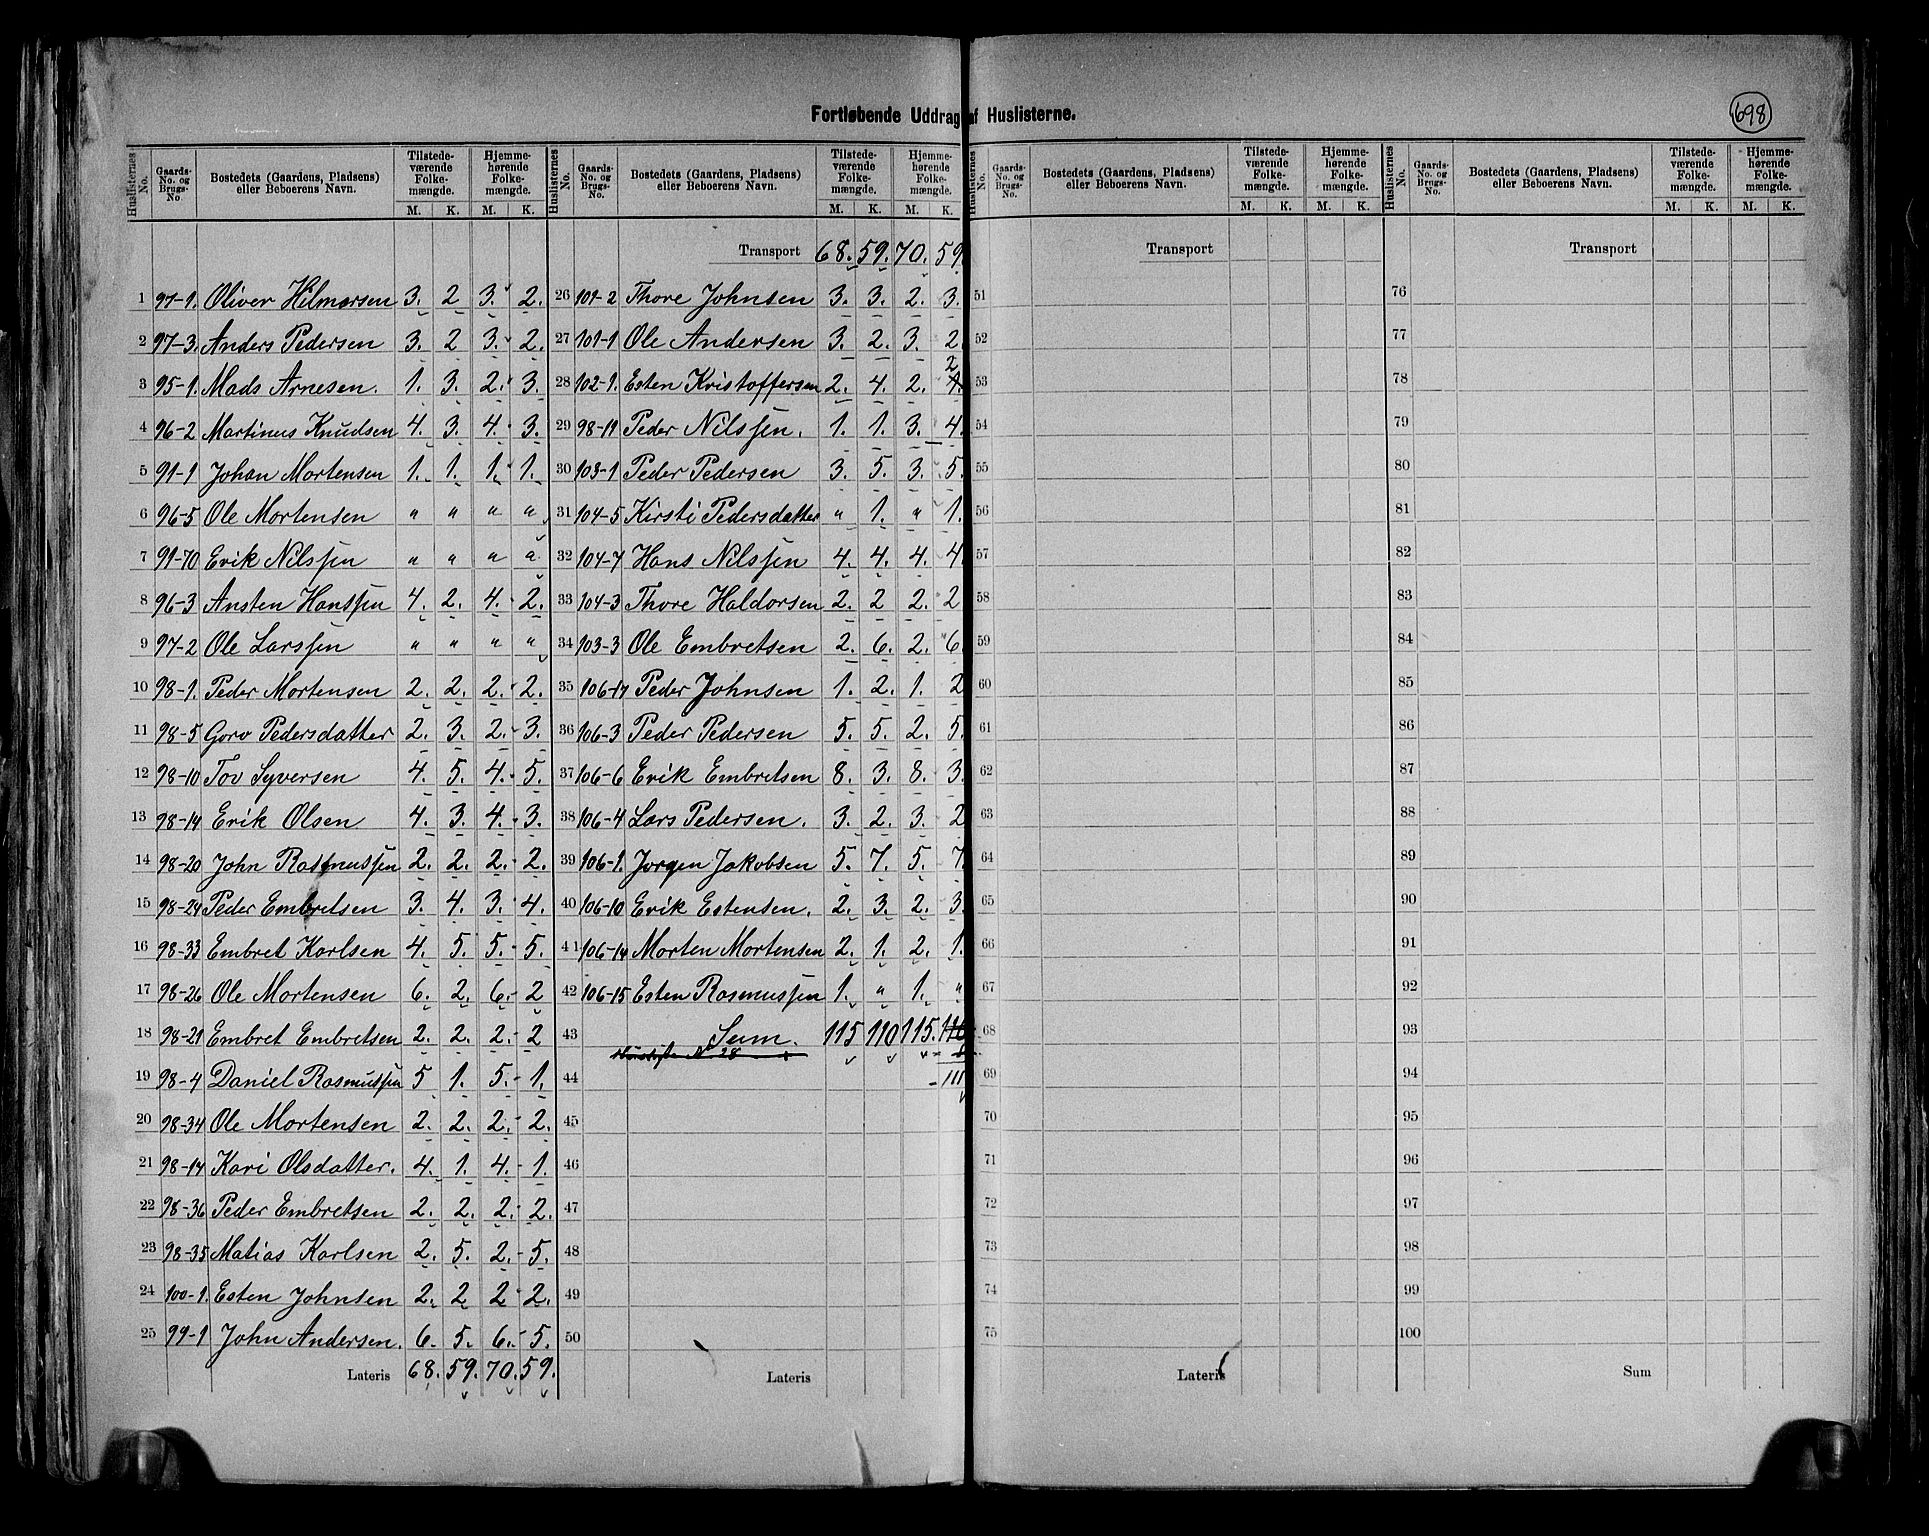 Fortløbende Uddrag af Huslisterne.
698
Huslisternes No. Gaards-No. og Brugs-No. Bostedets (Gaardens, Pladsens) eller Beboerens Navn. Tilstedeværende Folkemængde. M. K. Hjemmehørende Folkemængde. M. K.
1 97-1. Oliver Hilmarsen 3. 2 3. 2.
2 97-3. Anders Pedersen 3. 2 3. 2.
3 95-1. Mads Arnesen. 1. 3. 2. 3.
4 96-2 Martinus Knudsen 4. 3. 4. 3.
5 91-1 Johan Mortensen 1. 1. 1. 1.
6 96-5 Ole Mortensen " " " "
7 91-70 Erik Nilssen " " " "
8 96-3 Ansten Hanssen 4. 2. 4. 2.
9 97-2 Ole Larssen " " " "
10 98-1. Peder Mortensen 2. 2. 2. 2.
11 98-5 Goro Pedersdatter 2. 3. 2. 3.
12 98-10 Tov Syversen 4. 5. 4. 5.
13 98-14 Erik Olsen 4. 3. 4. 3.
14 98-20 John Rasmussen 2. 2. 2. 2.
15 98-24 Peder Embretsen 3. 4. 3. 4.
16 98-33 Embret Karlsen 4. 5. 5. 5.
17 98-26 Ole Mortensen 6. 2. 6. 2
18 98-21 Embret Embretsen 2. 2. 2. 2
19 98-4 Daniel Rasmussen 5 1. 5. 1.
20 98-34 Ole Mortensen 2. 2. 2. 2.
21 98-14 Kari Olsdatter. 4. 1. 4. 1.
22 98-36 Peder Embretsen 2. 2. 2. 2.
23 98-35 Matias Karlsen 2. 5. 2. 5.
24 100-1. Esten Johnsen 2. 2 2 2.
25 99-1 John Andersen. 6. 5. 6. 5.
Lateris 68. 59. 70. 59.
Huslisternes No. Gaards-No. og Brugs-No. Bostedets (Gaardens, Pladsens) eller Beboerens Navn. Tilstedeværende Folkemængde. M. K. Hjemmehørende Folkemængde. M. K.
Transport 68. 59. 70. 59.
26 101-2 Thore Johnsen 3. 3. 2. 3.
27 101-1 Ole Andersen 3. 2. 3. 2.
28 102-1. Esten Kristoffersen 2. 4. 2. 4. 2
29 98-19 Peder Nilssen. 1. 1. 3. 4.
30 103-1 Peder Pedersen 3. 5. 3. 5.
31 104-5 Kirsti Pedersdatter " 1. " 1.
32 104-7 Hans Nilssen 4. 4. 4. 4
33 104-3 Thore Haldorsen 2. 2 2. 2
34 103-3 Ole Embretsen 2. 6. 2. 6.
35 106-17 Peder Johnsen 1. 2. 1. 2
36 106-3 Peder Pedersen 5. 5. 2. 5.
37 106-6 Erik Embretsen 8. 3. 8. 3.
38 106-4 Lars Pedersen. 3. 2. 3. 2
39 106-1. Jørgen Jakobsen 5. 7. 5. 7.
40 106-10 Erik Estensen. 2. 3. 2. 3.
41 106-14 Morten Mortensen 2. 1. 2. 1.
42 106-15 Esten Rasmussen 1. " 1. "
43 Sum. 115 110 115. 110
44 111
45
46
47
48
49
50
Lateris
Huslisternes No. Gaards-No. og Brugs-No. Bostedets (Gaardens, Pladsens) eller Beboerens Navn. Tilstedeværende Folkemængde. M. K. Hjemmehørende Folkemængde. M. K.
Transport
51
52
53
54
55
56
57
58
59
60
61
62
63
64
65
66
67
68
69
70
71
72
73
74
75
Lateris
Huslisternes No. Gaards-No. og Brugs-No. Bostedets (Gaardens, Pladsens) eller Beboerens Navn. Tilstedeværende Folkemængde. M. K. Hjemmehørende Folkemængde. M. K.
Transport
76
77
78
79
80
81
82
83
84
85
86
87
88
89
90
91
92
93
94
95
96
97
98
99
100
Sum